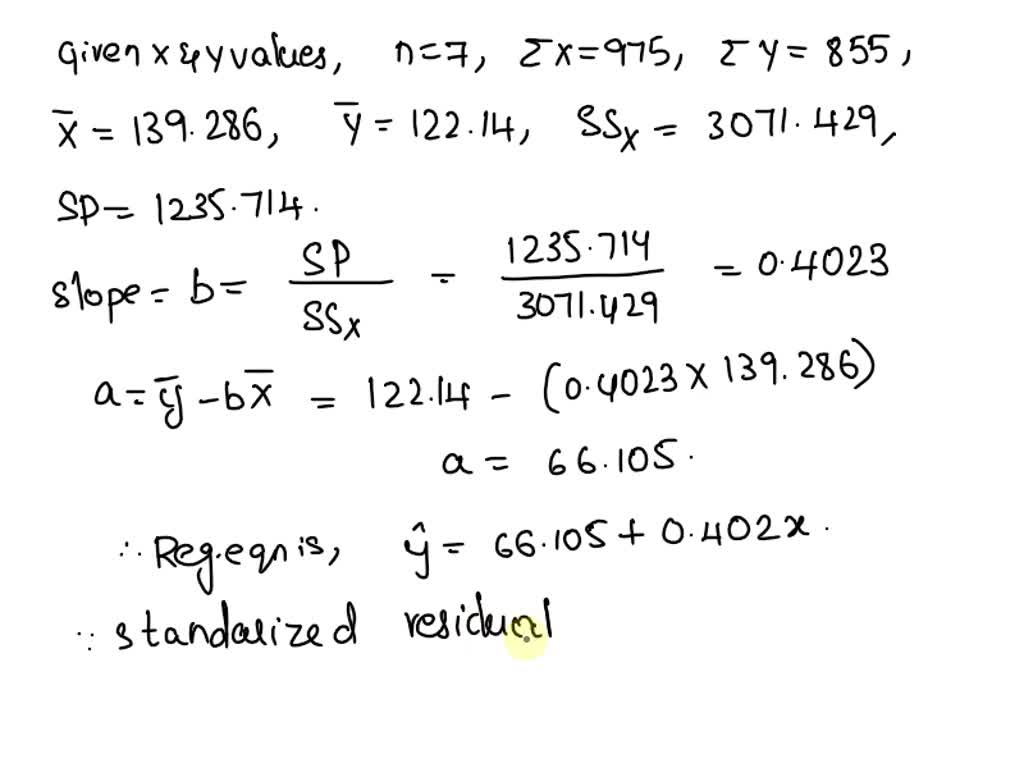 given x & y values, n=7, Σx=975, Σy=855,
x̄ = 139.286, ȳ = 122.14, SSx = 3071.429,
SP= 1235.714.
slope = b = SP/SSx = 1235.714/3071.429 = 0.4023
a = ȳ - bx̄ = 122.14 - (0.4023 x 139.286)
a = 66.105.
∴ Reg.eqn is, ŷ = 66.105 + 0.402x.
∵ standarized residual